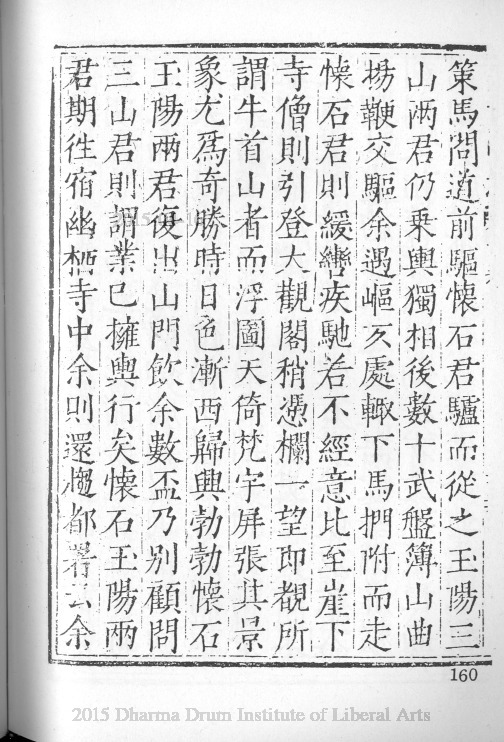 策馬問道前驅懷石君驢而從之玉陽三
山兩君仍乗輿獨相後數十武盤簿山曲
揚鞭交驅余遇嶇仄處輙下馬捫附而走
懐石君則緩轡疾馳若不經意比至崖下
寺僧則引登大觀閣稍憑欄一望即覩所
謂牛首山者而浮圖天倚梵宇屏張其景
象尤爲奇勝時日色漸西歸興勃勃懐石
玉陽兩君復出山門飲余數盃乃别顧問
三山君則謂業已擁輿行矣懐石玉陽兩
君期徃宿幽栖寺中余則還趨都署云余
160
2015 Dharma Drum Institute of Liberal Arts